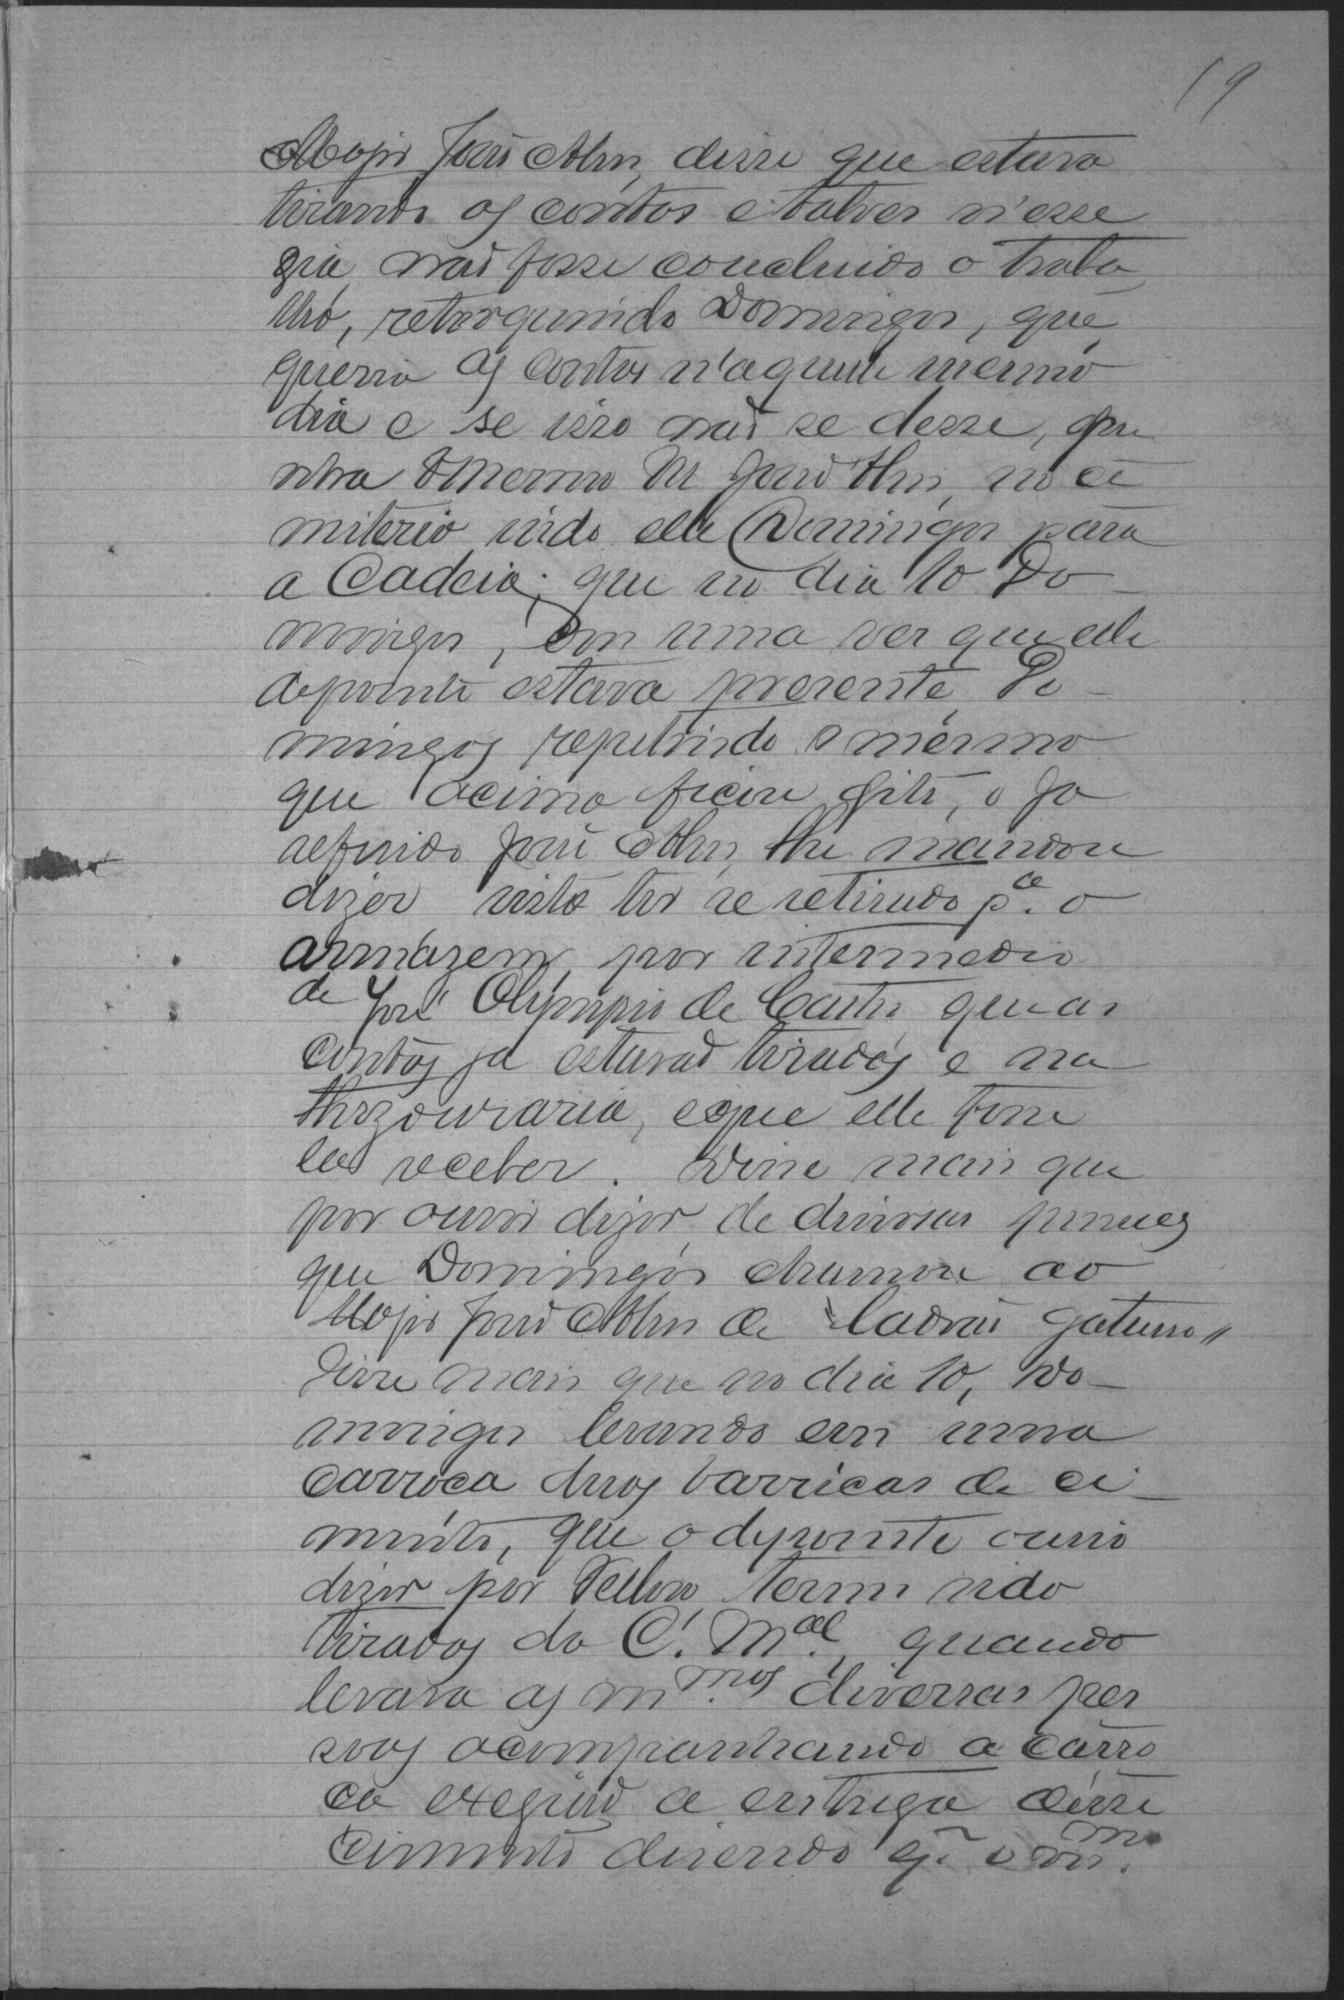 19
Major José Alvs, disse que estava
tirando as contas e talves n'esse
dia não fosse concluido o traba
lho, retorquindo Domingos, que
queria as contas n'aquelle mesmo
dia e se isso não se desse, que
o mesmo M José Alvs, no ce
miterio indo elle Domingos para
a Cadeia; que no dia 10 Do-
mingos, em uma ves que elle
depoente estava presente, Do-
mingos repetindo o mesmo
que acima ficou dito, o ja
referido José Alvs, lhe mandou
dizer visto ter se retirado pª. o
armazem, por intermedio
de José Olympio de Castro que as
contas ja estavão tiradas e na
Thezouraria, e que elle fosse
las receber. Disse mais que
por ouvir dizer de diversas pessoas
que Domingos chamou ao
Major José Alvs de "ladrão gatuno"
Disse mais que no dia 10, Do-
mingos levando em uma
carroça duas barricas de ci-
mento, que o depoente ouvio
dizer por terem sido
tiradas da C. Mal, quando
levava as mmas diversas pes
soas acompanhando a carro
ça exegindo a entrega desse
cimento disendo q.